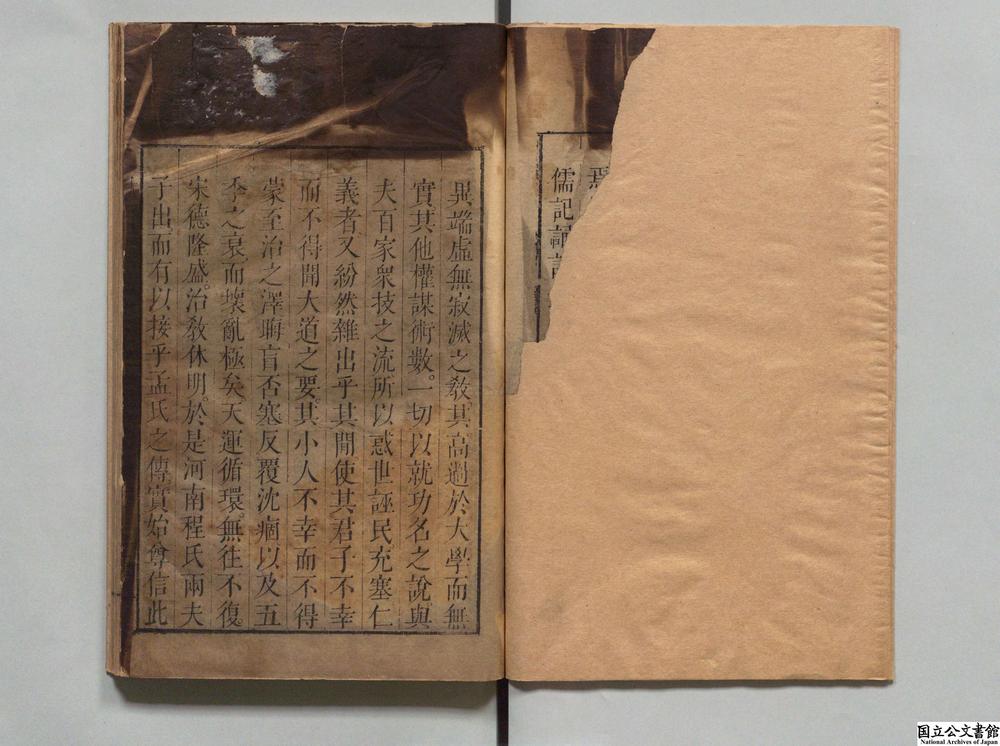 儒記
異端虛無寂滅之敎。其高過於大學而無
實其他權謀術數。一切以就功名之說。與
夫百家衆技之流所以惑世誣民。充塞仁
義者又紛然雜出乎其閒使其君子不幸
而不得聞大道之要。其小人不幸而不得
蒙至治之澤晦盲否塞反覆沈痼以及五
季之衰而壞亂極矣天運循環。無往不復。
宋德隆盛。治敎休明。於是河南程氏兩夫
子出而有以接乎孟氏之傳實始尊信此
国立公文書館
National Archives of Japan